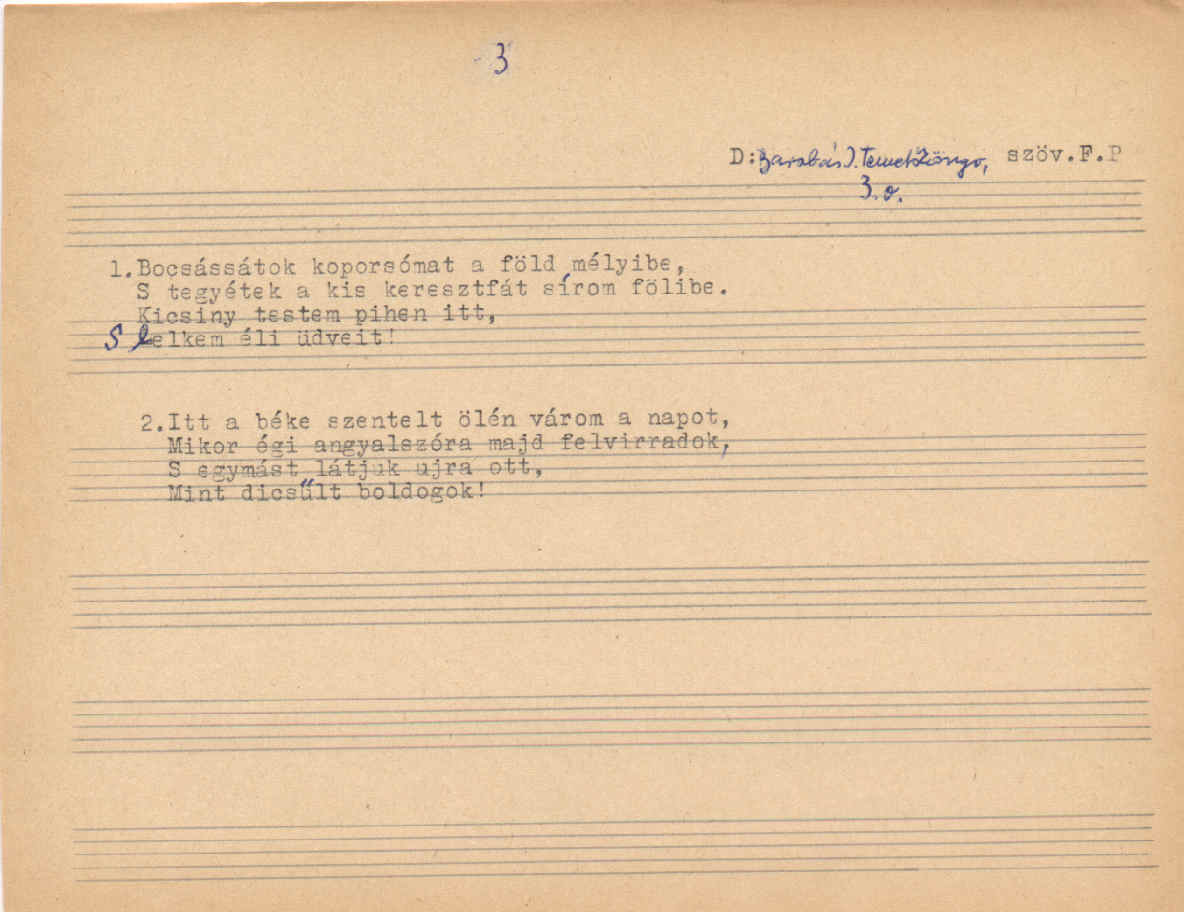 3
D: Barabás J. Temetőöngo, szöv.F.P
3.o.
1.Bocsássátok koporsómat a föld mélyibe,
S tegyétek a kis keresztfát sírom fölibe.
Kicsiny testem pihen itt,
S lelkem éli üdveit!
2.Itt a béke szentelt ölén várom a napot,
Mikor égi angyalszóra majd felvirradok,
S egymást látjuk ujra ott,
Mint dicsűlt boldogok!